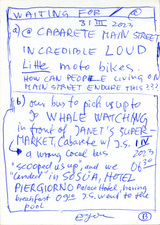 WAITING FOR /
31 III 2023
a) @ CABARETE MAIN STREET
INCREDIBLE LOUD
Little moto bikes.
HOW CAN PEOPLE LIVING ON
MAIN STREET ENDURE THIS???
b) our bus to pick us up to
go WHALE WATCHING
in front of JANET'S SUPER-
MARKET, Cabarete w/ J.S. 1 IV
a wrong local bus 2023
"scooped us up", and we 06 30
"landed" in SOSÚA, HOTEL
PIERGIORNO Palace Hotel, having
breakfast 09 J.S. went to the
pool